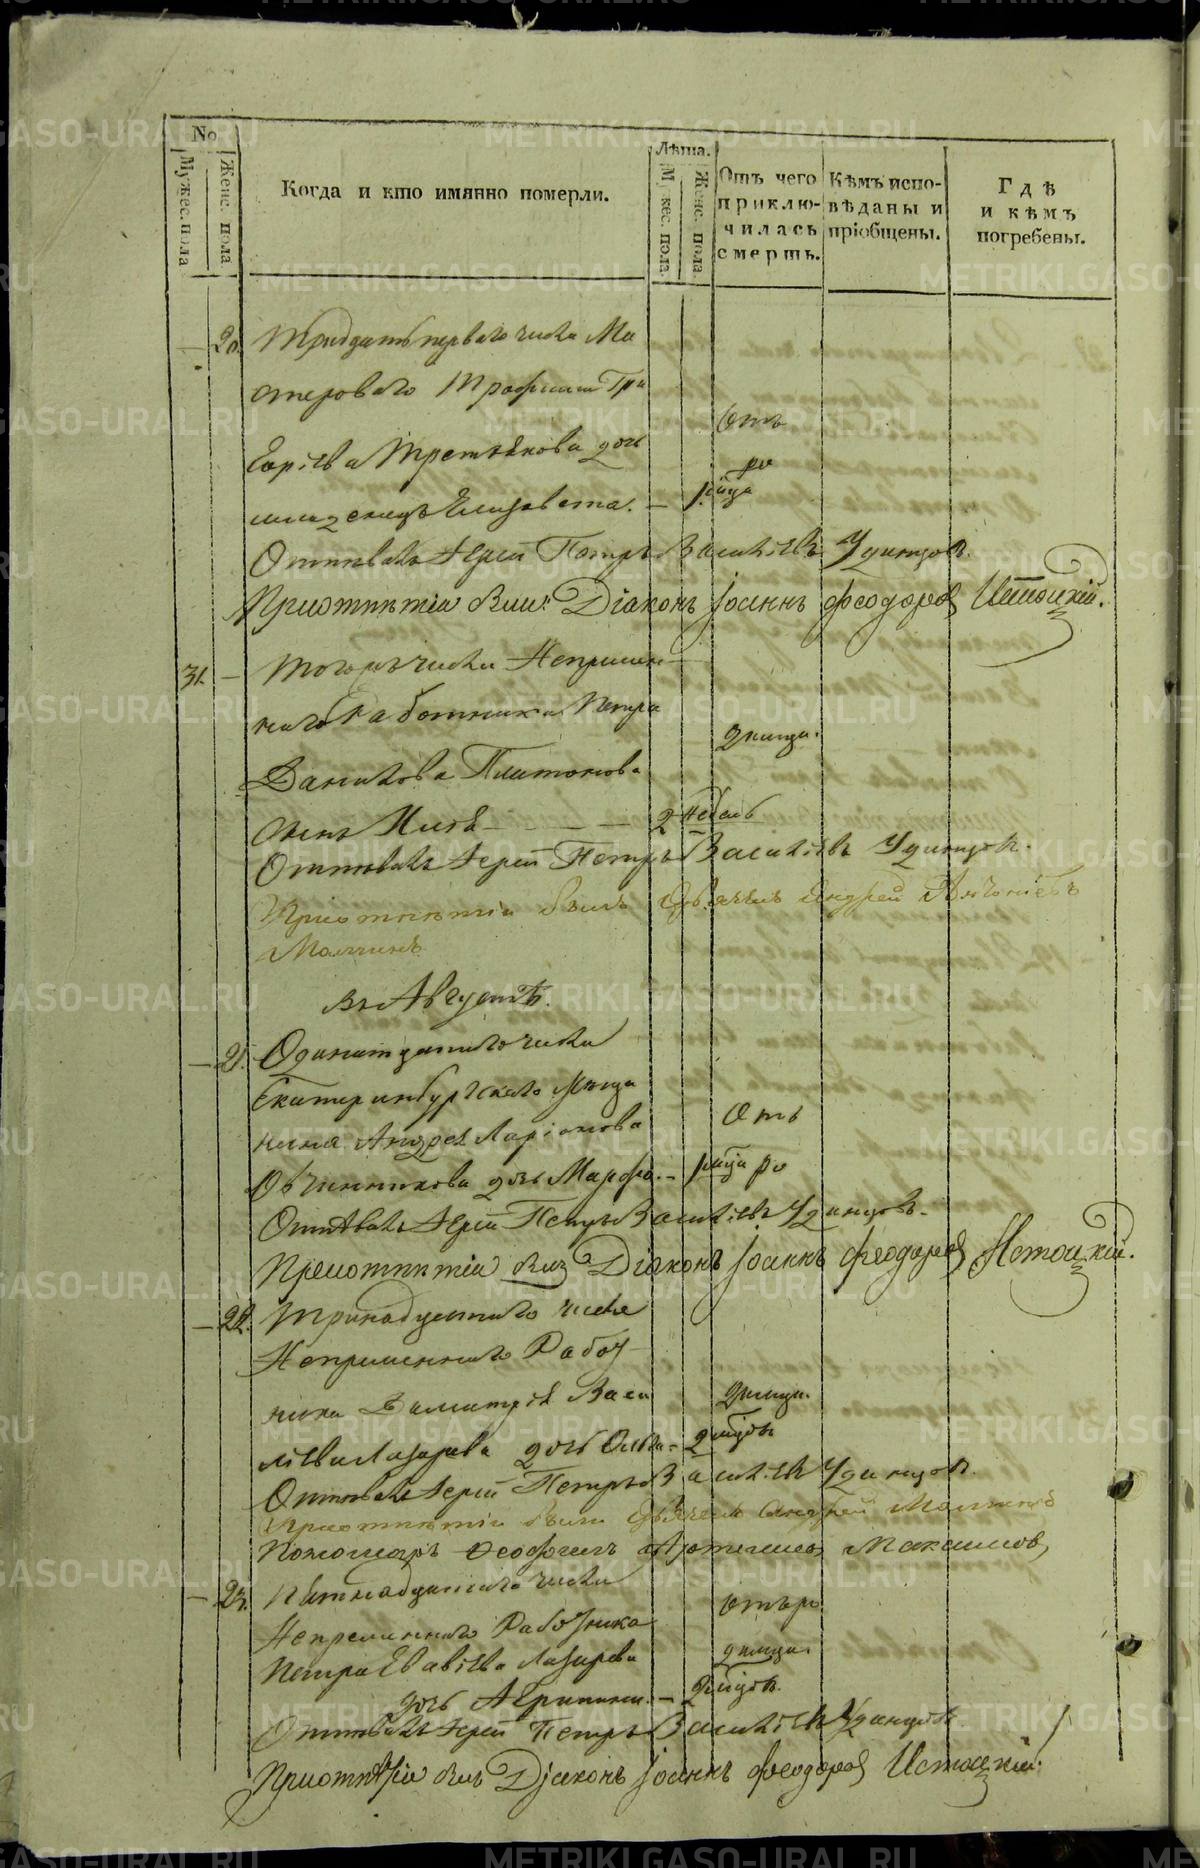 No
Мужес. пола
Женс. пола
Когда и кто имянно померли.
Лѣта.
Мужес. пола
Женс. пола
Отъ чего приклю-
чилась смерть.
Кѣмъ испо-
вѣданы и
пріобщены.
Гдѣ
и кѣмъ
погребены.
20. Тридцать перваго числа Ма
стероваго Трофима Гри
горіева Третьякова дочь
младенецъ Елизавета. —
Отпѣвалъ Іерей Петръ Васильевъ Удинцовъ.
При отпѣтіи былъ Діаконъ Іоаннъ Феодоровъ Истоцкій.
31. — Тогожъ числа Непремен
наго Работника Петра
Данилова Платонова
сынъ Илья — — — 2 недѣль
Отпѣвалъ Іерей Петръ Васильевъ Удинцовъ.
При отпѣтіи былъ Дьячекъ Андрей
Молчинъ
въ Августѣ.
— 21. Одинатцатаго числа
Екатеринбургскаго Мѣща
нина Андрея Ларіонова
Овчинникова дочь Марфа. —
Отъ
Отпѣвалъ Іерей Петръ Васильевъ Удинцовъ.
При отпѣтіи былъ Діаконъ Іоаннъ Феодоровъ Истоцкій.
— 22. Тринадцатаго числа
Непременнаго Работ
ника Димитрія Васи
ліева Лазарева дочь Ольга —
Отпѣвалъ Іерей Петръ Васильевъ Удинцовъ.
При отпѣтіи были Дьячекъ Андрей Молчинъ
Пономарь Феофилъ Артемьевъ Макаимов,
— 23. Пятнадцатаго числа
Непременнаго Работника
Петра Евавіева Лазарева
дочь Агрипина. —
Отпѣвалъ Іерей Петръ Васильевъ Удинцовъ
При отпѣтіи былъ Діаконъ Іоаннъ Феодоровъ Истоцкій.
METRIKI.GASO-URAL.RU